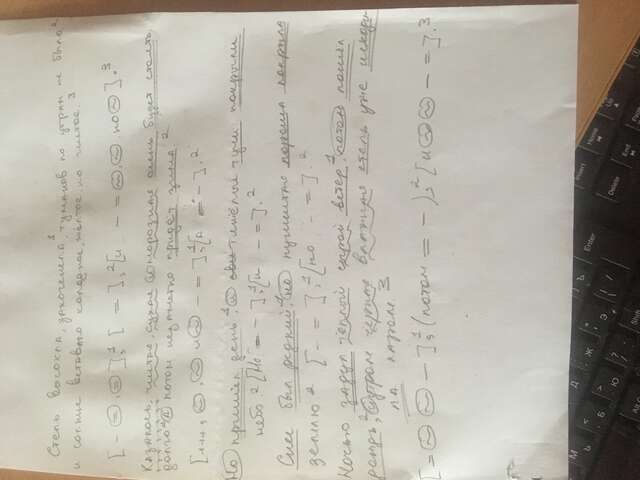 Степь высохла, закоченела,¹ туманов по утрам не было²
и солнце вставало холодное, жёлтое, но чистое.³
[ - =, = ],¹ [ = ],² [и - = ~, ~, но ~ ].³
Казалось, чистая, сухая и морозная осень будет стоять
долго² а потом незаметно придёт зима.²
[ ~, ~ и ~ - = ],¹ [а = - ].²
Но пришёл день,¹ и тяжёлые тучи покрыли
небо.² [Но = - ],¹ [и - = ].²
Снег был редкий,¹ но пушистая пороша покрыла
землю² [ - = ],¹ [но - = ].²
Ночью задул тёплый сырой ветер,¹ потом пошёл
дождь,² и утром чёрная влажная степь уже исходи-
ла паром.³
[ = ~ ~ - ],¹ (потом = - ),² [и ~ ~ - = ].³
Enter
Insert
Home
Up
Delete
End
Shift
Alt Gr